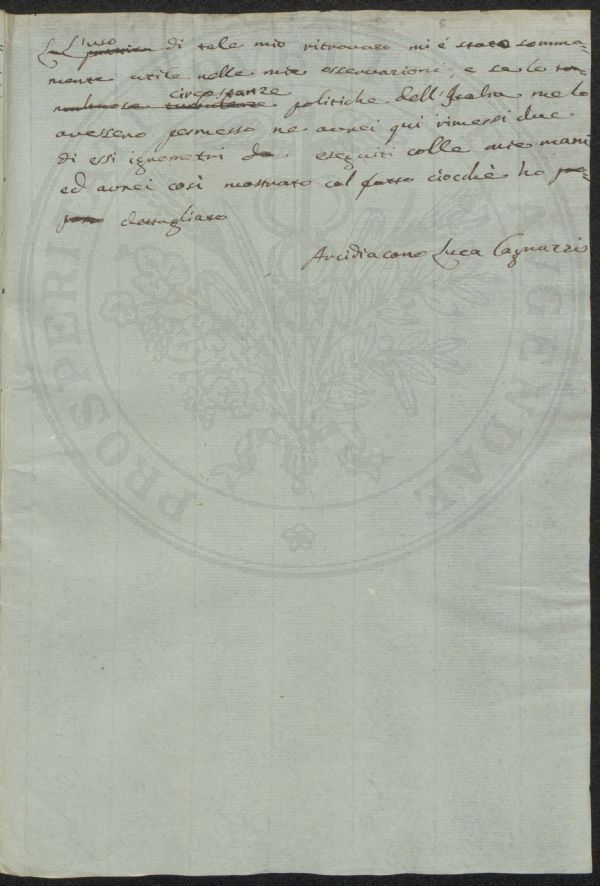 L'uso
La pratica di tale mio ritrovato mi è stato somma-
mente utile nelle mie osservazioni, e se le
circostanze
turbolenze politiche dell'Italia me lo
avessero permesso ne avrei qui rimessi due
di essi igrometri da eseguiti colle mie mani
ed avrei così mostrato col fatto ciocchè ho
dettagliato
Arcidiacono Luca Cagnazzi
PROSPERI
IGENDAE